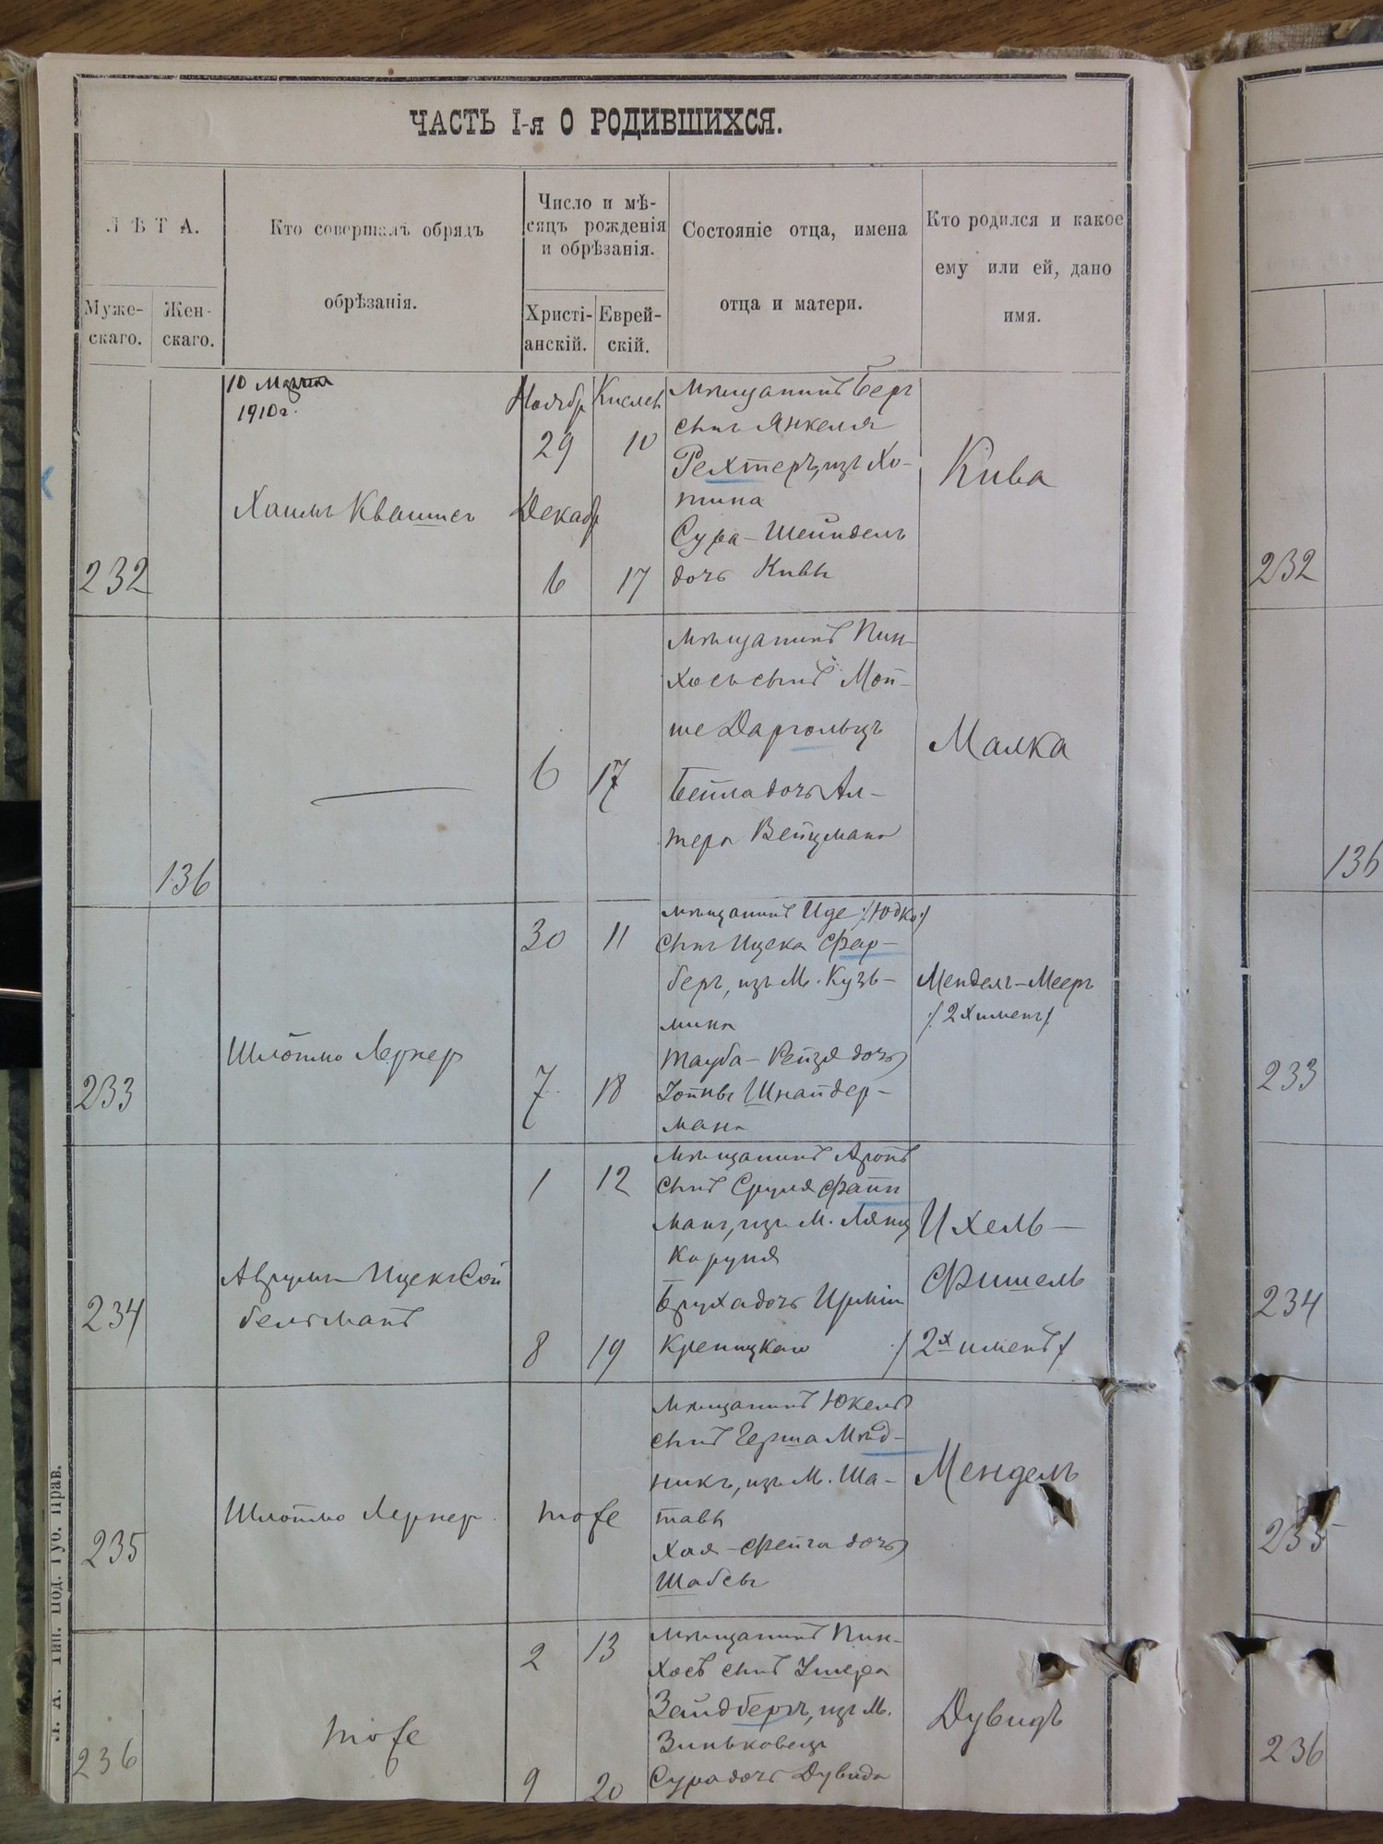 ЧАСТЬ I-я О РОДИВШИХСЯ.
ЛѢТА.
Муже-
скаго.
Жен-
скаго.
Кто совершалъ обрядъ
обрѣзанія.
Число и мѣ-
сяцъ рожденія
и обрѣзанія.
Христі-
анскій.
Еврей-
скій.
Состояніе отца, имена
отца и матери.
Кто родился и какое
ему или ей, дано
имя.
232
10
1910г.
Хаимъ Квашнеъ
Ноябр
29
Декабр
6
Кислев
10
17
мѣщанинъ Беръ
сынъ Янкеля
Рехтеръ, изъ Хо-
тина
Сура-Шейндель
дочь Кивы
Кива
232
136
6
17
мѣщанинъ Пин-
хосъ сынъ Мой-
ше Даргольцъ
Бейла дочь Ал-
тера Вейцмана
Малка
136
233
Шлоймо Лернер
30
7
11
18
мѣщанинъ Иде /:Юдко:/
сынъ Ицека Фар-
беръ, изъ М. Кузь-
мина
Тауба-Рейзя дочь
Іойны Шнайдер-
мана
Мендель-Мееръ
/: 2х именъ /
233
234
Аврумъ Ицекъ Сой
бельманъ
1
8
12
19
мѣщанинъ Аронъ
сынъ Сруля Файн
манъ, изъ М. Лянц
коруня
Бруха дочь
Крепицкаго
Ихель-
Фишель
/ 2х именъ /
234
235
Шлоймо Лернер
тоже
мѣщанинъ Юкель
сынъ Герша Мѣд-
никъ, изъ М. Ша-
тавы
Хая-Фейга дочь
Шабсы
Мендель
235
236
тоже
2
9
13
20
мѣщанинъ Пин-
хосъ сынъ Ушера
Зейдберъ, изъ М.
Зиньковецъ
Сура дочь Дувида
Дувидъ
236
Тип. Под. Губ. Прав.